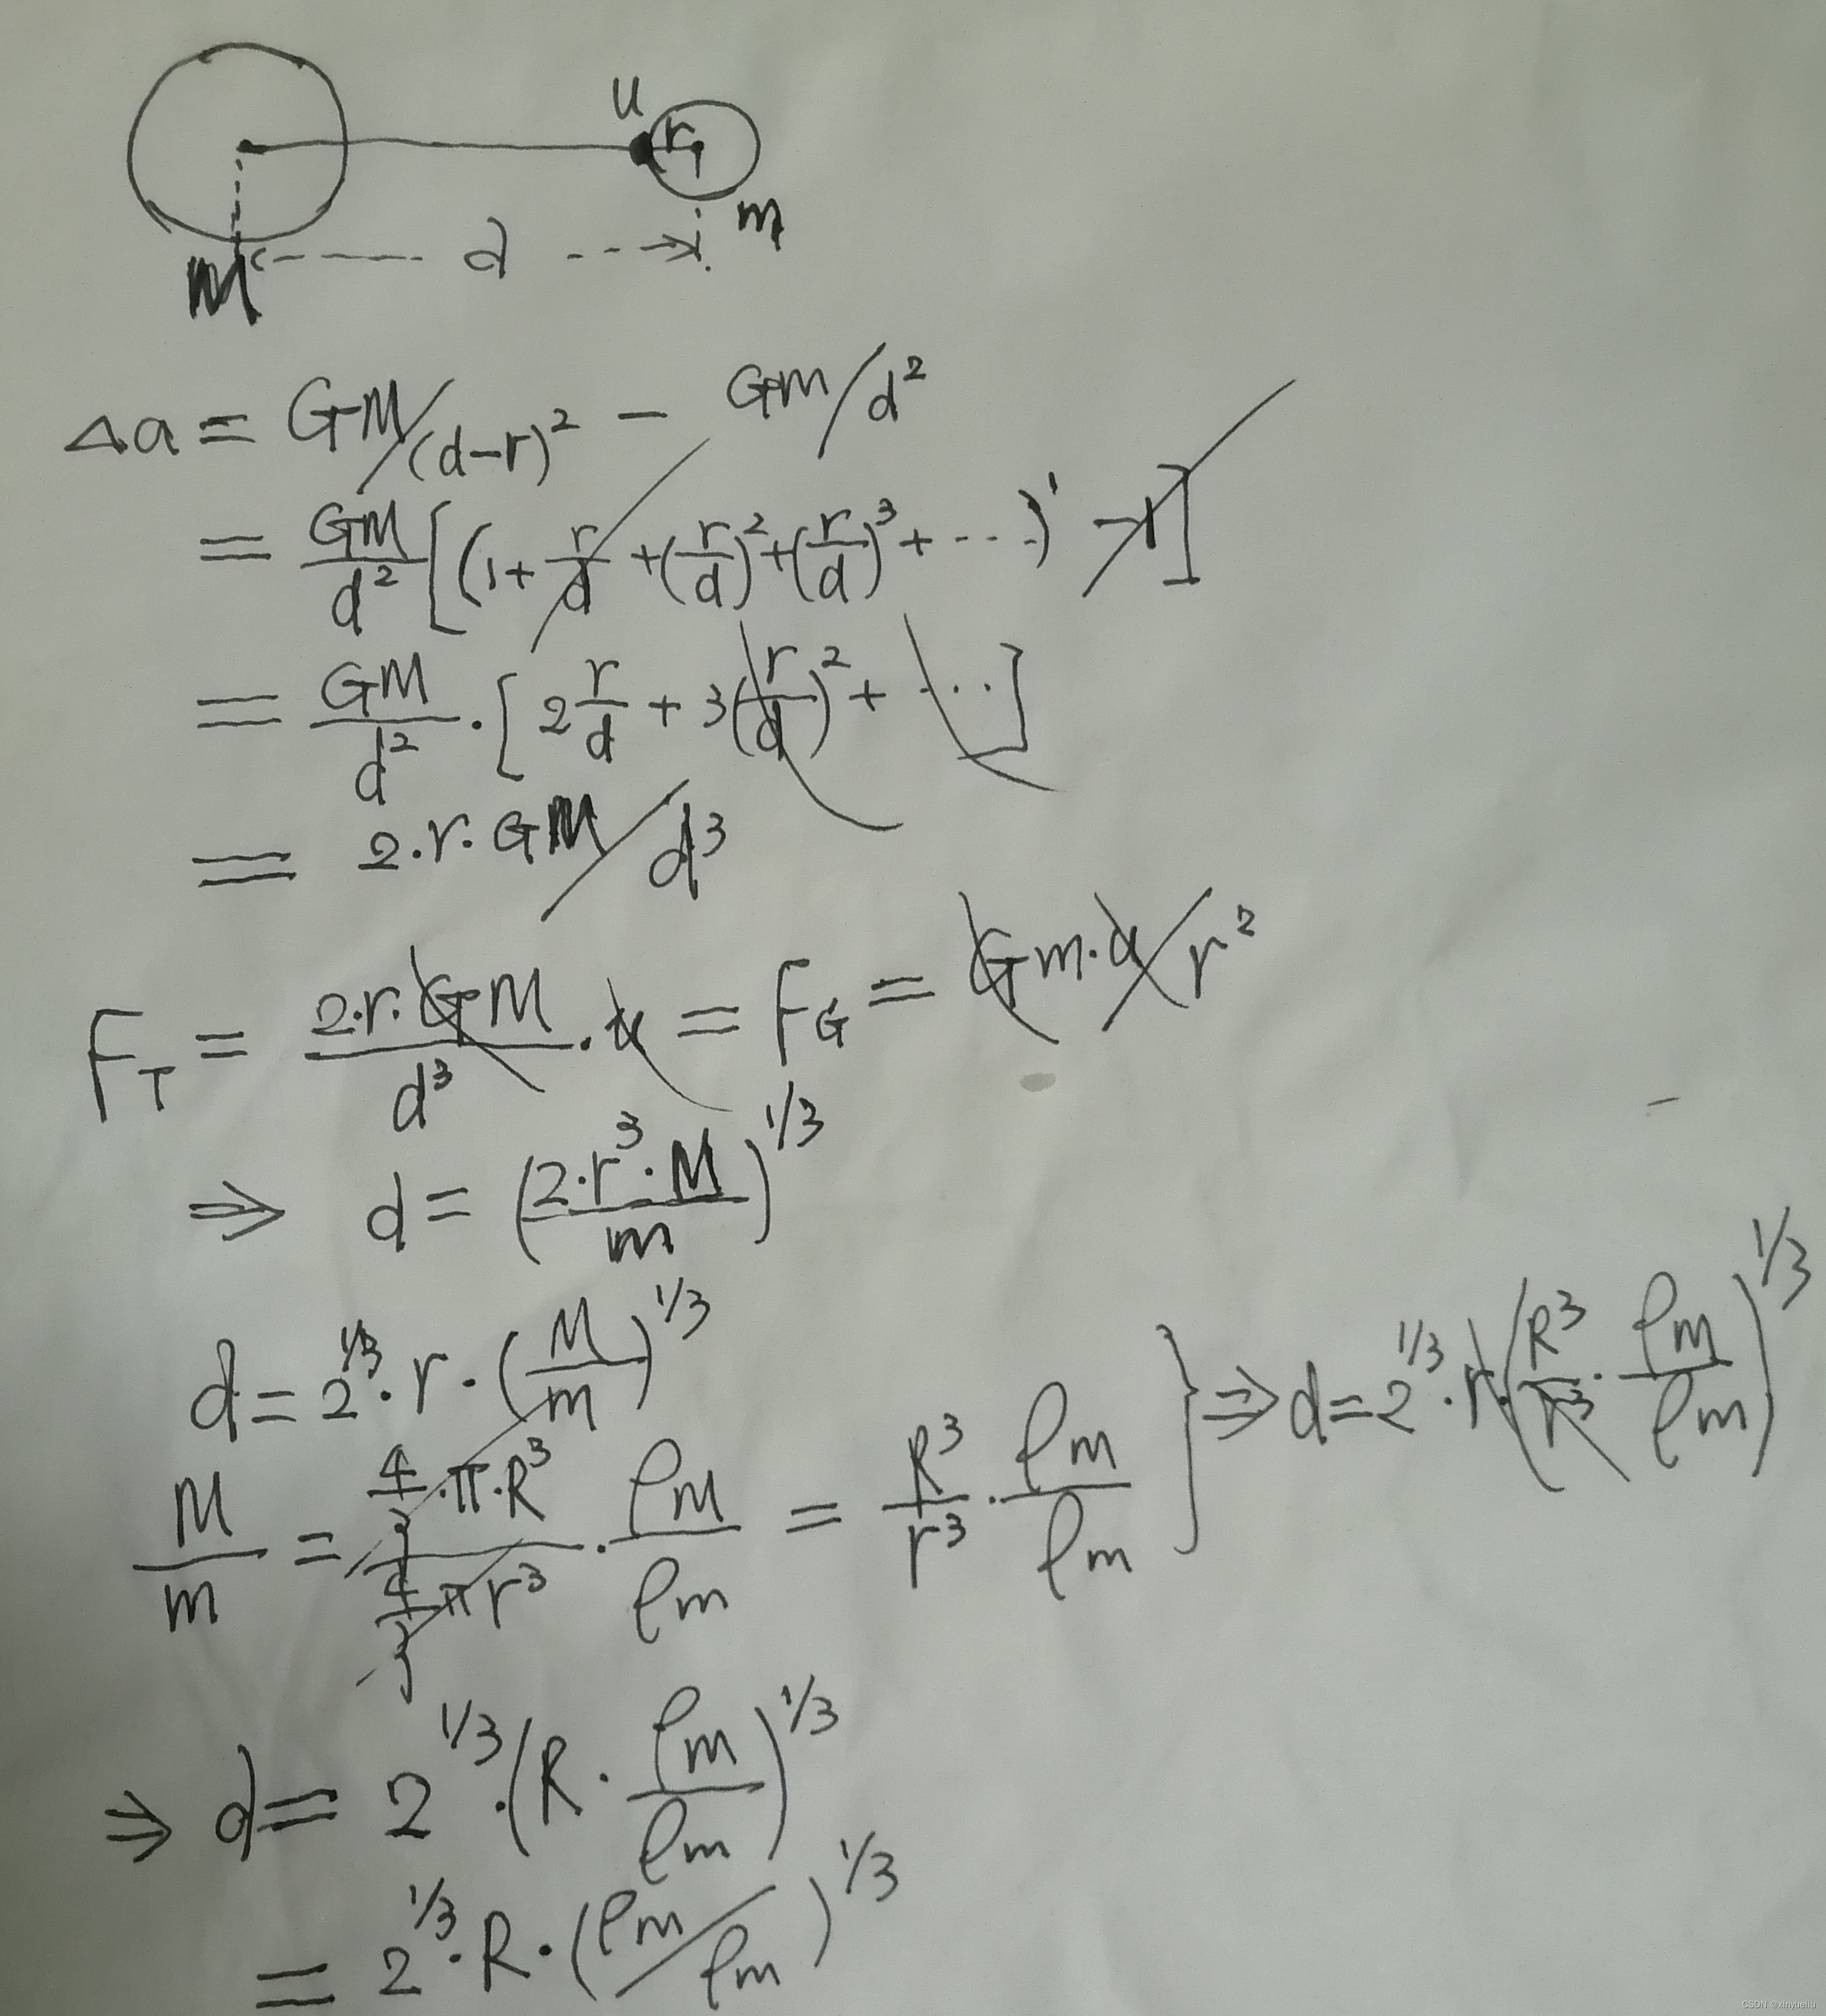 u
r
m
M
d
Δa = GM/(d-r)² - GM/d²
= GM/d² [(1 + r/d + (r/d)² + (r/d)³ + ···)' - 1]
= GM/d² · [2 r/d + 3(r/d)² + ···]
= 2·r·GM/d³
F_T = 2·r·GM/d³ · u = F_G = Gm·u/r²
⇒ d = (2·r³·M/m)^1/3
d = 2^1/3 · r · (M/m)^1/3
M/m = 4/3·π·R³ / 4/3πr³ · ρM/ρm = R³/r³ · ρm/ρm } ⇒ d = 2^1/3 · r·(R³/r³ · ρm/ρm)^1/3
⇒ d = 2^1/3 · (R · ρm/ρm)^1/3
= 2^1/3 · R · (ρm/ρm)^1/3
CSDN @xinyueliu